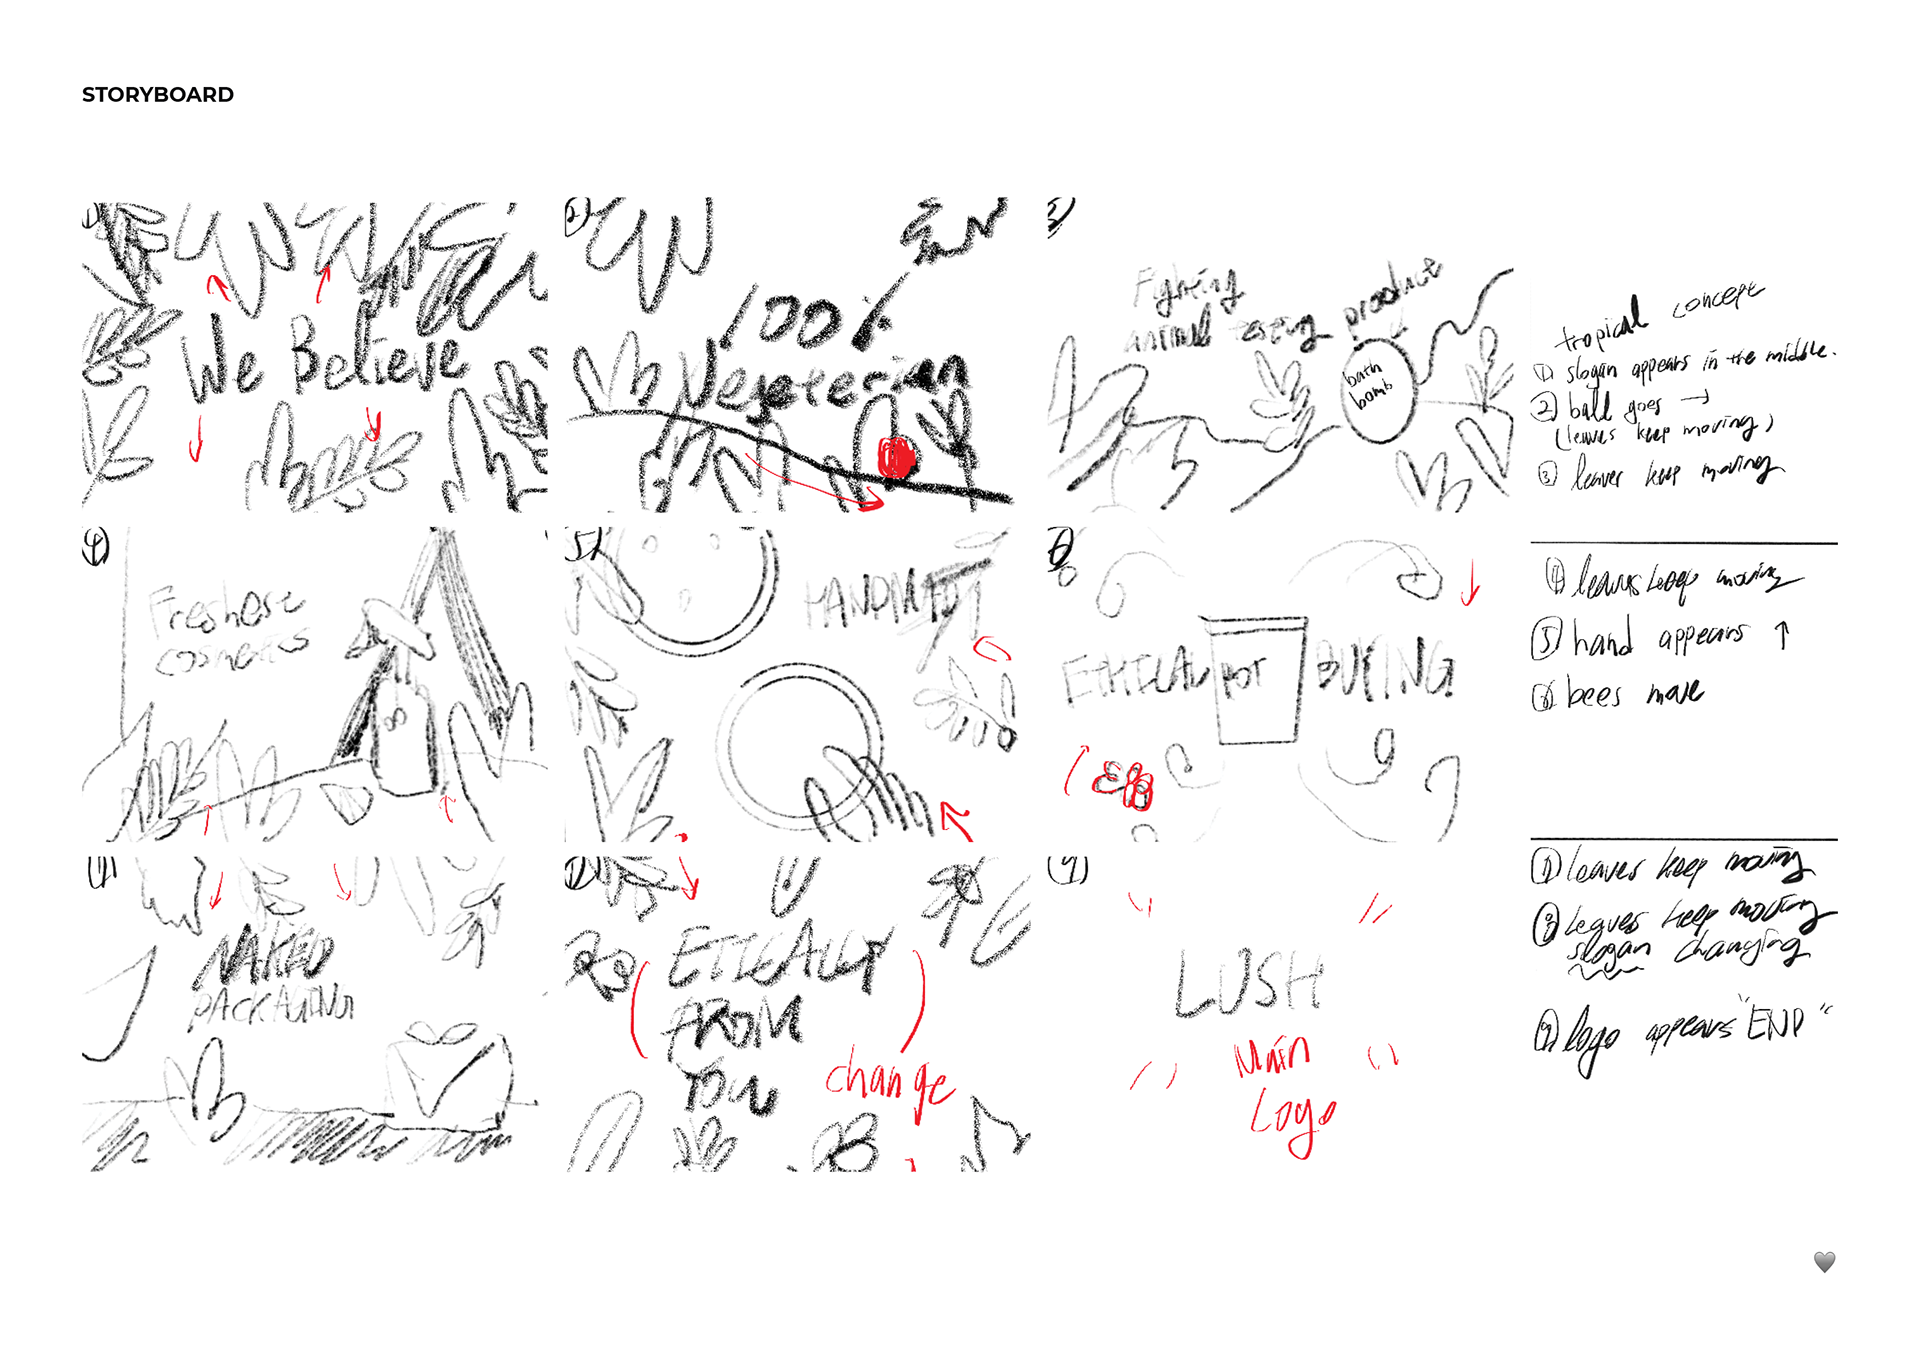 STORYBOARD
1
We Believe
2
100%
Vegeterian
3
Fighting
animal testing product
bath
bomb
tropical concept
① slogan appears in the middle.
② ball goes →
(leaves keep moving)
③ leaves keep moving
4
Freshest
cosmetics
5
HANDMADE
6
ETHICAL POT BUYING
④ leaves keep moving
⑤ hand appears ↑
⑥ bees move
NAKED
PACKAGING
ETICALLY
FROM
YOU
change
9
LUSH
Main
Logo
leaves keep moving
⑧ leaves keep moving
slogan changing
⑨ logo appears "END"